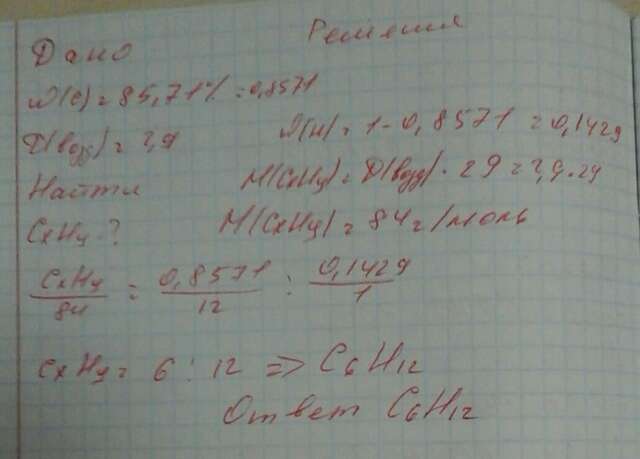 Дано Решения
ω(C) = 85,71% = 0,8571
D(возд) = 2,9 ω(H) = 1 - 0,8571 = 0,1429
Найти M(CxHy) = D(возд) · 29 = 2,9 · 29
CxHy - ? M(CxHy) = 84 г/моль
CxHy/84 = 0,8571/12 : 0,1429/1
CxHy = 6 : 12 => C6H12
Ответ C6H12